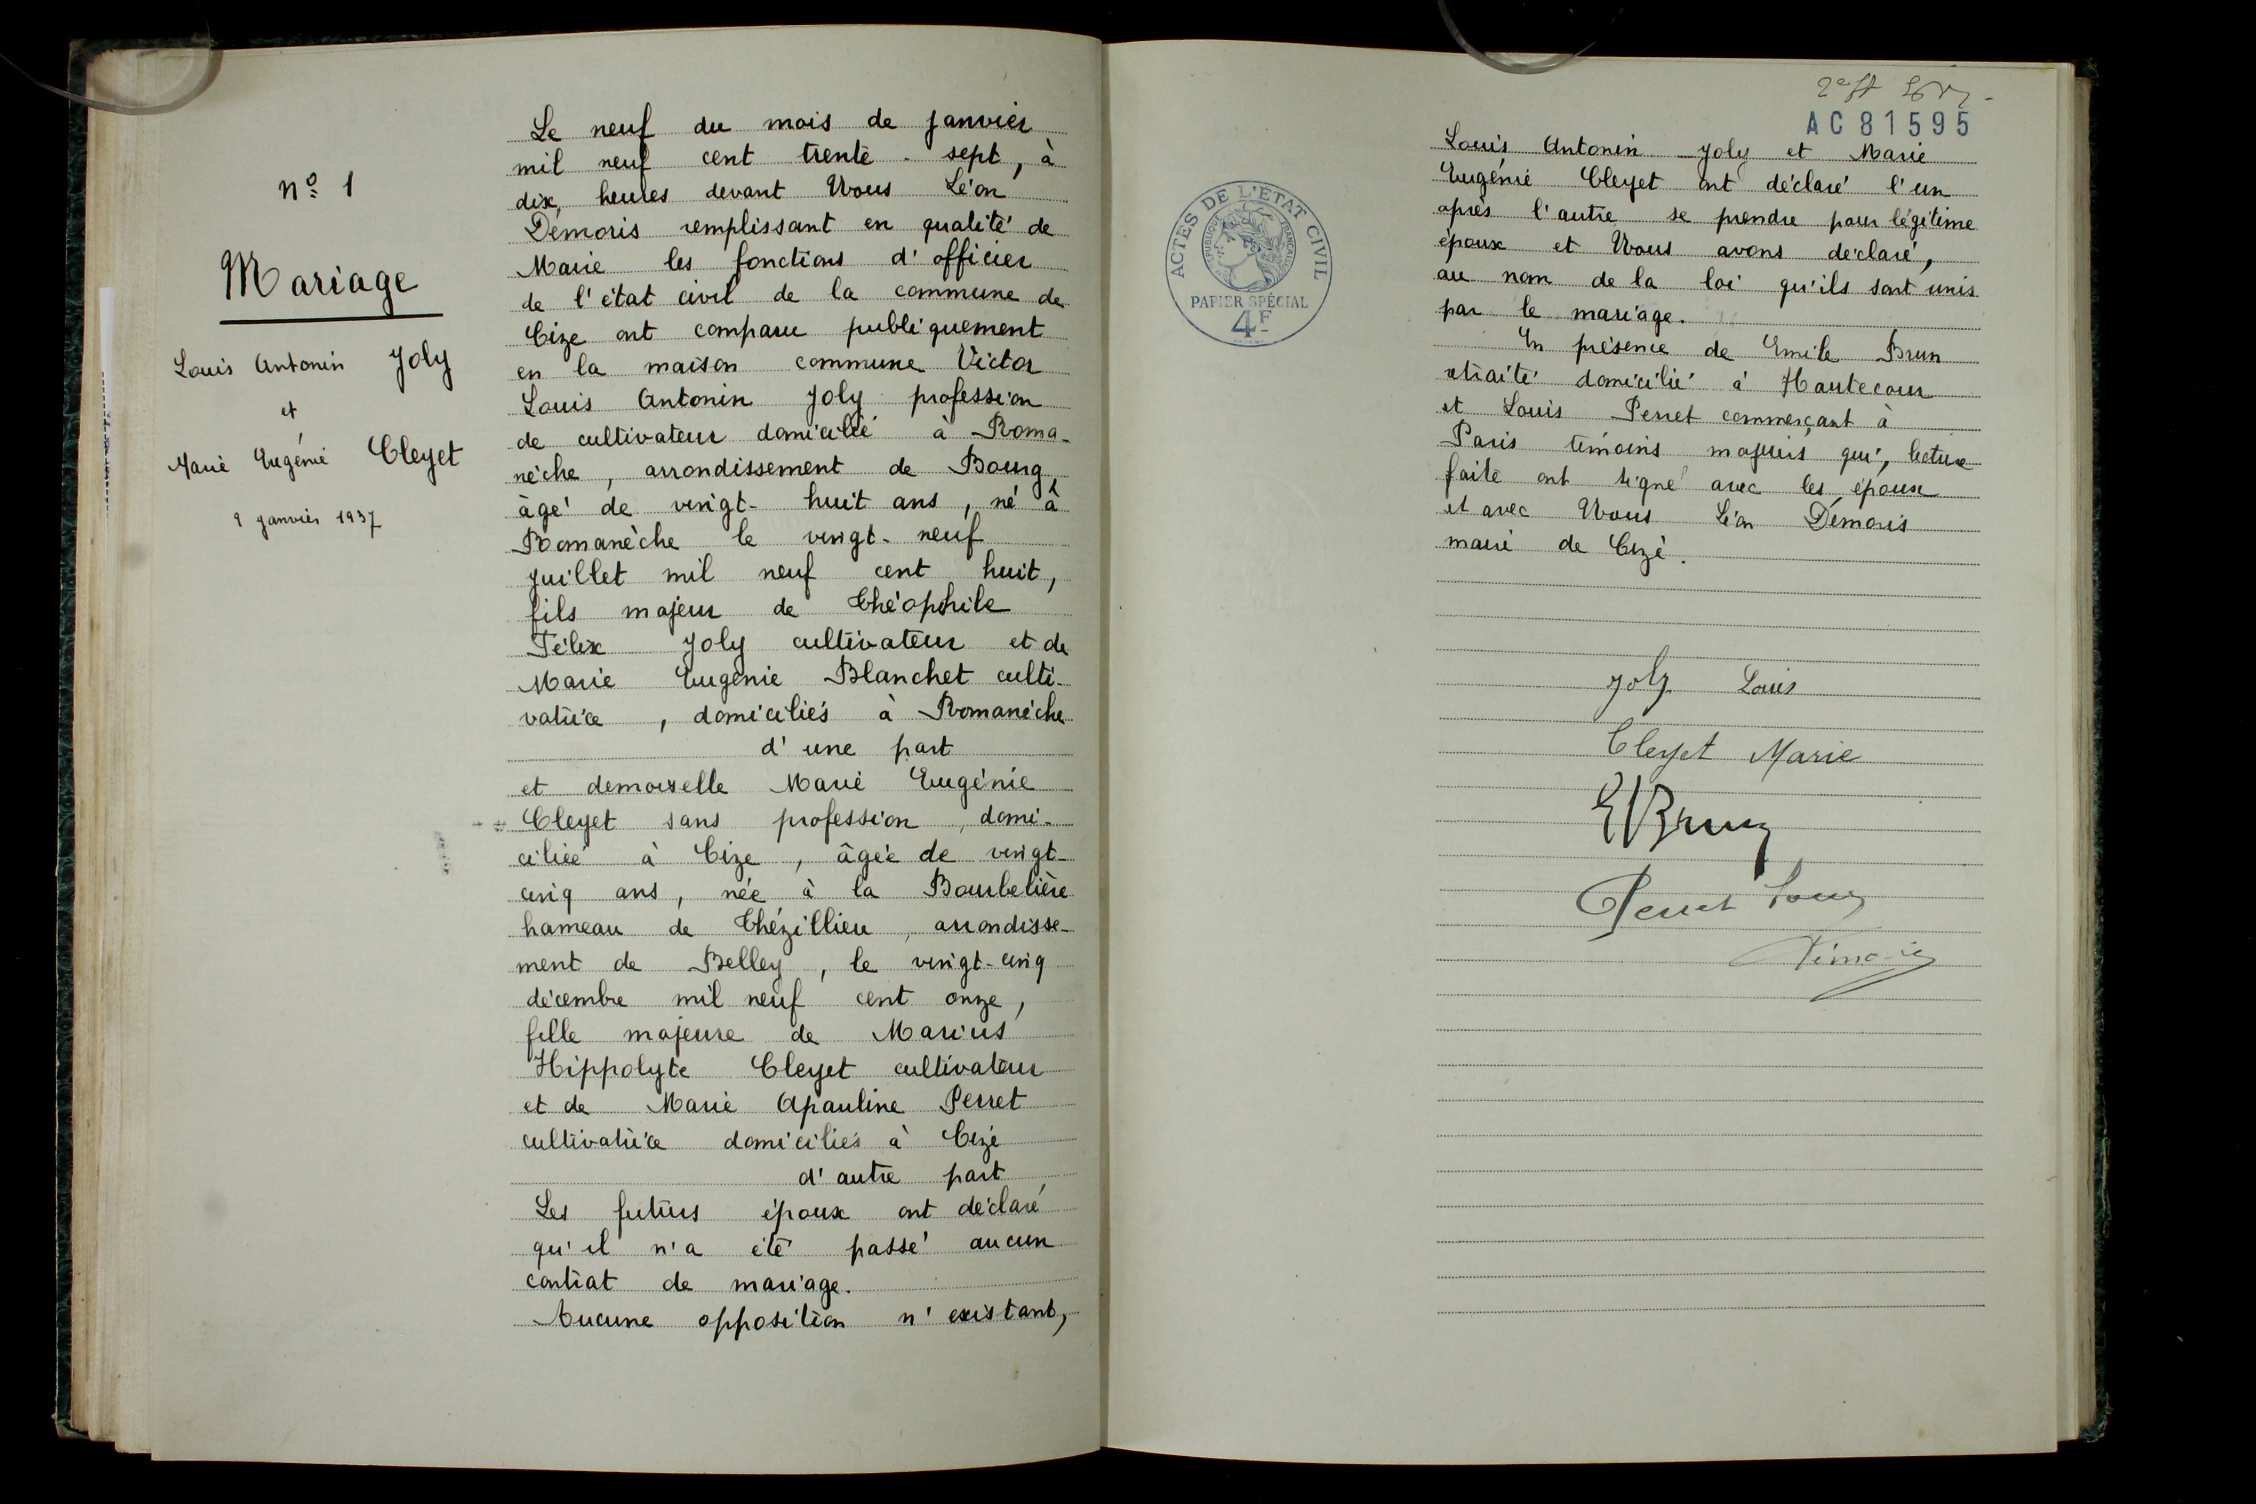 n° 1
Mariage
Louis Antonin Joly
et
Marie Eugénie Cleyet
9 janvier 1937
Le neuf du mois de janvier
mil neuf cent trente - sept, à
dix heures devant Nous Léon
Démoris remplissant en qualité de
Maire les fonctions d'officier
de l'état civil de la commune de
Cize ont comparu publiquement
en la maison commune Victor
Louis Antonin Joly profession
de cultivateur domicilié à Roma-
nèche, arrondissement de Bourg
âgé de vingt-huit ans, né à
Romanèche le vingt-neuf
juillet mil neuf cent huit,
fils majeur de Théophile
Félix Joly cultivateur et de
Marie Eugénie Blanchet culti-
vatrice, domiciliés à Romanèche
d'une part
et demoiselle Marie Eugénie
Cleyet sans profession, domi-
ciliée à Cize, âgée de vingt-
cinq ans, née à la Bourbelière
hameau de Thézillieu, arrondisse-
ment de Belley, le vingt-cinq
décembre mil neuf cent onze,
fille majeure de Marius
Hippolyte Cleyet cultivateur
et de Marie Apauline Perret
cultivatrice domiciliés à Cize
d'autre part
Les futurs époux ont déclaré
qu'il n'a été passé aucun
contrat de mariage.
Aucune opposition n'existant,
AC 81595
ACTES DE L'ÉTAT CIVIL
RÉPUBLIQUE FRANÇAISE
PAPIER SPÉCIAL
4F
Louis Antonin Joly et Marie
Eugénie Cleyet ont déclaré l'un
après l'autre se prendre pour légitime
époux et Nous avons déclaré,
au nom de la loi qu'ils sont unis
par le mariage.
En présence de Emile Brun
retraité domicilié à Hautecour
et Louis Perret commerçant à
Paris témoins majeurs qui, lecture
faite ont signé avec les époux
et avec Nous Léon Démoris
maire de Cize.
Joly Louis
Cleyet Marie
E Brun
Perret Louis